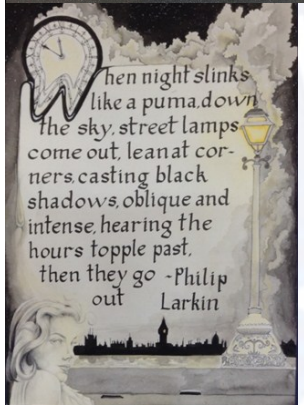 When night slinks
like a puma, down
the sky, street lamps
come out, lean at cor-
ners, casting black
shadows, oblique and
intense, hearing the
hours topple past,
then they go -Philip
out Larkin